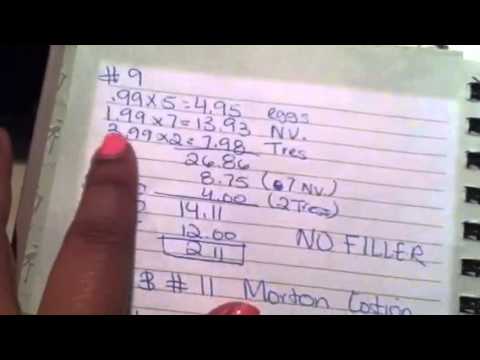 #9
.99x5=4.95 eggs
1.99x7=13.93 NV.
3.99x2=7.98 Tres
26.86
8.75 (.7 NV.)
4.00 (2 Tres)
14.11
12.00 NO FILLER
2.11
B #11 Morton